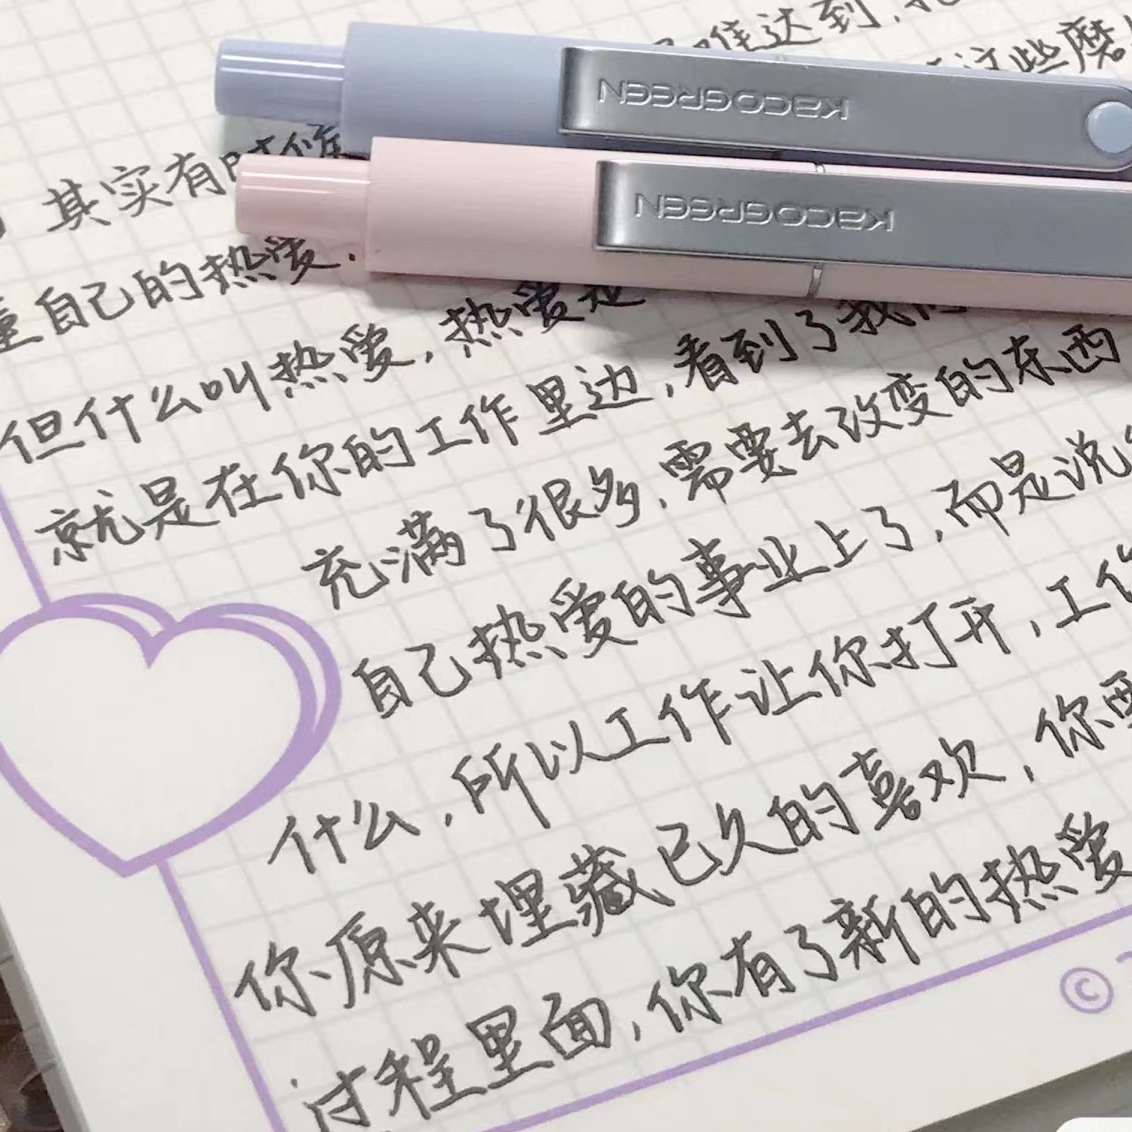 难达到,
这些磨
KACOGREEN
KACOGREEN
其实有时候
重自己的热爱.
但什么叫热爱,热爱是
就是在你的工作里边,看到了我们
充满了很多,需要去改变的东西
自己热爱的事业上了,而是说
什么,所以工作让你打开,工作
你原来埋藏已久的喜欢,你要
过程里面,你有了新的热爱
©